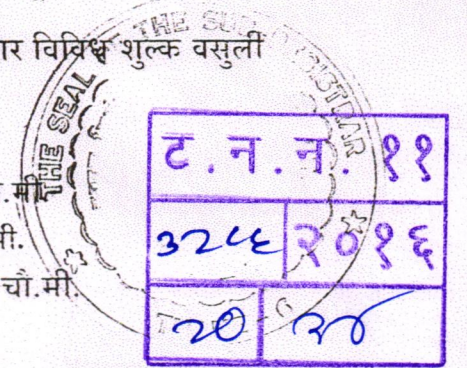 र विविध शुल्क वसुली
THE SEAL OF THE SUB REGISTRAR
ट . न . न. ११
.मी.
३२५६ २०१६
मी.
चौ.मी.
२०